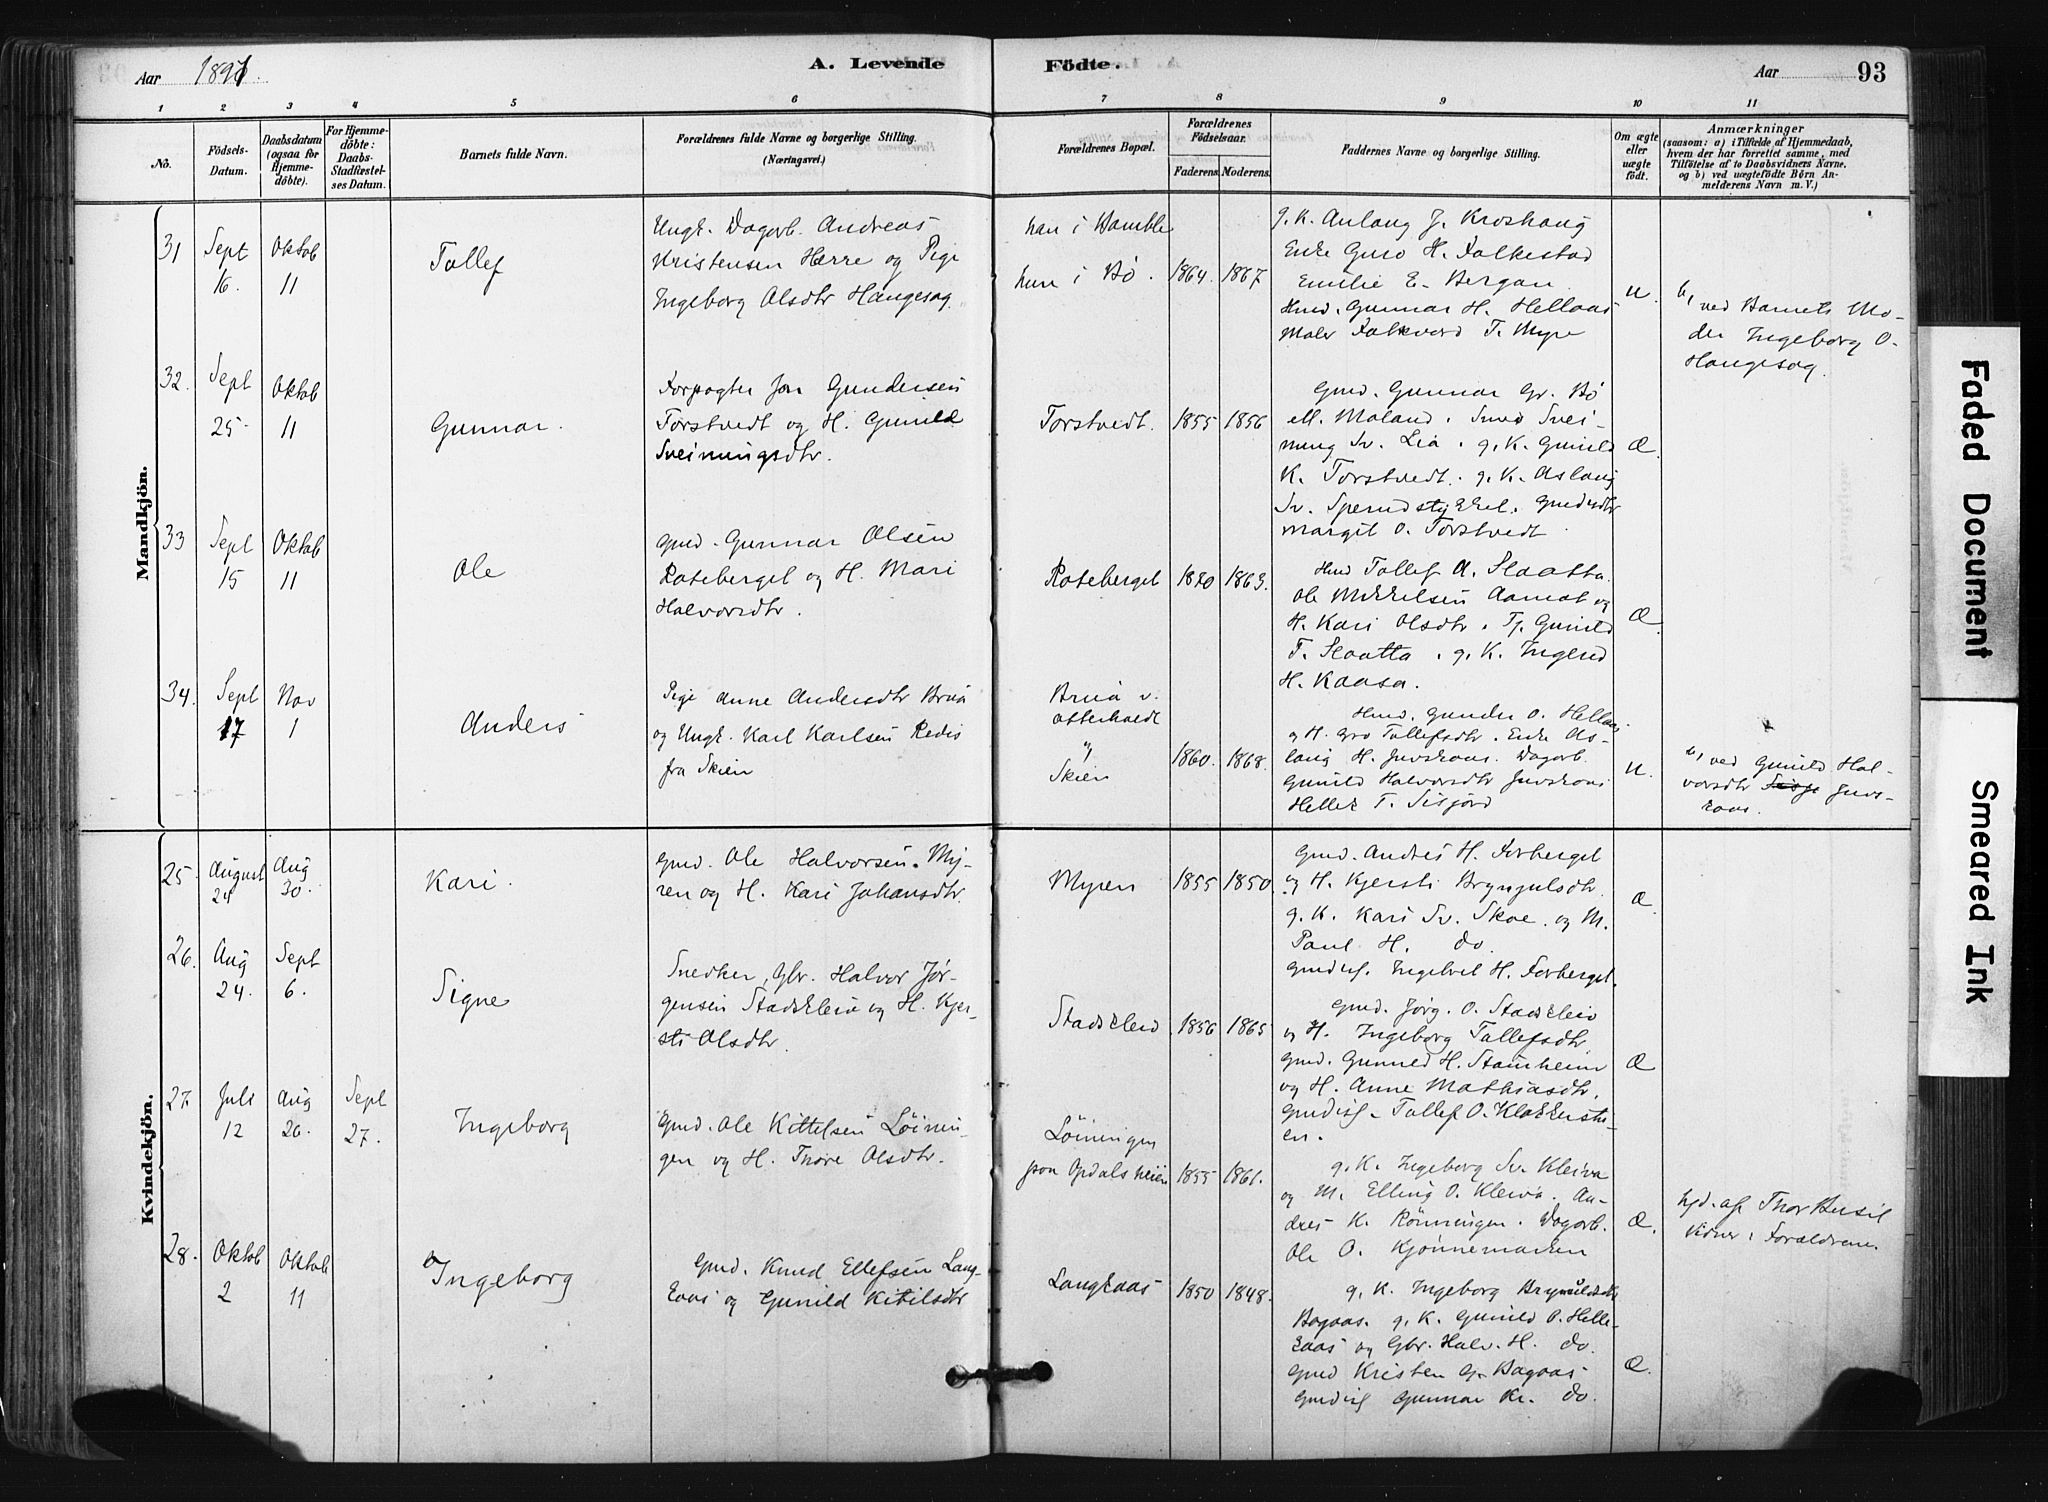 Aar 1891.
A. Levende
Födte.
Aar
93
1 2 3 4 5 6 7 8 9 10 11
No.
Födsels-Datum.
Daabsdatum (ogsaa for Hjemmedöbte).
For Hjemmedöbte: Daabs-Stadfæstelses Datum.
Barnets fulde Navn.
Forældrenes fulde Navne og borgerlige Stilling.
(Næringsvei.)
Forældrenes Bopæl.
Forældrenes Födselsaar.
Faderens.
Moderens.
Faddernes Navne og borgerlige Stilling.
Om ægte eller uægte födt.
Anmærkninger
(saasom: a) i Tilfælde af Hjemmedaab,
hvem der har forrettet samme, med
Tilföielse af to Daabsvidners Navne.
og b) ved uægtefödte Börn An-
melderens Navn m. V.)
Mandkjön.
31
Sept 16.
Oktob 11
Tollef
Ungk. Dagarb. Andreas
Kristensen Herre og Pige
Ingeborg Olsdtr Haugesag.
han i Bamble
hun i Bö.
1864.
1867
g. K. Aslaug J. Kroshaug
Enke Guro H. Folkestad
Emilie E. Bergan
Hmd. Gunnar H. Hellaas
Maler Folkvard T. Myre
u.
b, ved Barnets Mo-
der Ingeborg O.
Haugesag.
32.
Sept 25.
Oktob 11
Gunnar.
Forpagter Jon Gundersen
Torstvedt og H. Gunild
Sveinungsdtr.
Torstvedt.
1855
1856
Gmd. Gunnar Gr. Bö
ell. Moland. Smed Svei-
nung Sv. Lia. g. K. Gunild
K. Torstvedt. g. K. Aslaug
Sv. Sperudstykket. Gmdsdtr
Margit O. Torstvedt
Æ.
33
Sept 15
Oktob 11
Ole
Gmd. Gunnar Olsen
Roteberget og H. Mari
Halvorsdtr.
Roteberget
1820
1863.
Hmd Tollef A. Slaatta.
Ole Mikkelsen Aamot og
H. Kari Olsdtr. Tj. Gunild
T. Slaatta. g. K. Ingerid
H. Kaasa.
Æ.
34.
Sept 17
Nov 1
Anders
Pige Anne Andersdtr Brua
og Ungk. Karl Karlsen Redis
fra Skien
Brua v.
Otterholdt
og
Skien
1860.
1868.
Hmd. Gunder O. Hellaas
og H. Gro Tollefsdtr. Enke As-
laug H. Juvskaas. Dagarb.
Gunild Halvorsdtr Juvskaas
Hellek T. Sisjord
u.
b, ved Gunild Hal-
vorsdtr Juvs-
kaas.
Kvindekjön.
25.
August 24
Aug 30.
Kari.
Gmd. Ole Halvorsen My-
ren og H. Kari Johansdtr.
Myren
1855
1850
Gmd. Andres H. Forberget
og H. Kjersti Bryngulsdtr.
g. K. Kari Sv. Skoe. og M.
Paul H. do.
Gmdsf. Ingebret H. Forberget.
Æ.
26.
Aug 24.
Sept 6.
Signe
Snedker, Gbr. Halvor Jör-
gensen Stadskleiv og H. Kjer-
sti Olsdtr.
Stadskleiv
1856
1865
Gmd. Jörg. O. Stadskleiv
og H. Ingeborg Tollefsdtr
Gmd. Gunuld H. Stamheim
og H. Anne Mathiasdtr.
Gmdsf. Tollef O. Klokkerstu-
en.
Æ
27.
Juli 12
Aug 26.
Sept 27.
Ingeborg
Gmd. Ole Kittelsen Löinin-
gen og H. Thore Olsdtr.
Löiningen
paa Opdalsheien
1855
1861.
g. K. Ingeborg Sv. Kleiva
og M. Elling O. Kleiva. An-
dres K. Rönningen. Dagarb.
Ole O. Kjönnemarken
Æ.
hjd. af Thor Busil
Vidner: Forældrene.
28.
Oktob 2
Oktob 11
Ingeborg
Gmd. Knud Ellefsen Lang-
kaas og Gunild Kitilsdtr
Langkaas
1850
1848.
g. K. Ingeborg Brynuldsdtr
Bagaas. g. K. Gunild O. Helle-
kaas og Gbr. Halv. H. do.
Gmd Kristen G. Bagaas
Gmdsf Gunnar Kr. do.
Æ.
Faded Document
Smeared Ink